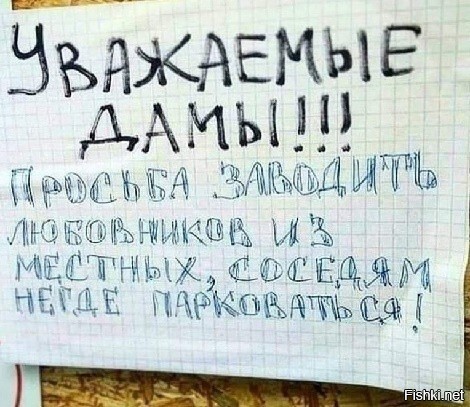 УВАЖАЕМЫЕ
ДАМЫ!!!
ПРОСЬБА ЗАВОДИТЬ
ЛЮБОВНИКОВ ИЗ
МЕСТНЫХ, СОСЕДЯМ
НЕГДЕ ПАРКОВАТЬСЯ!
Fishki.net